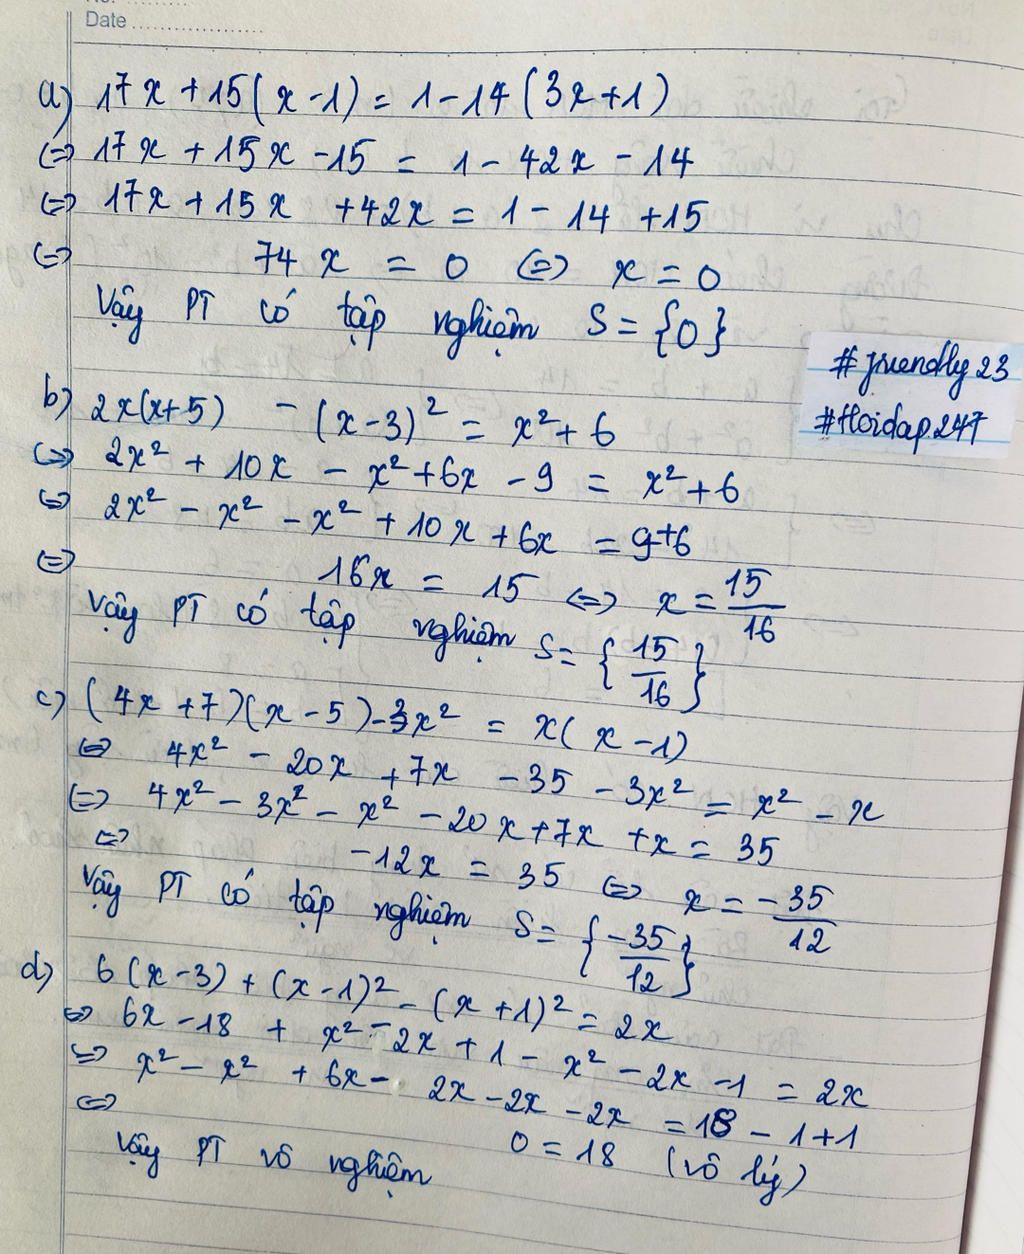 Date
a) 17x + 15(x - 1) = 1 - 14(3x + 1)
⇔ 17x + 15x - 15 = 1 - 42x - 14
⇔ 17x + 15x + 42x = 1 - 14 + 15
⇔ 74x = 0 ⇔ x = 0
Vậy PT có tập nghiệm S = {0}
#friendly23
#Hoidap247
b) 2x(x+5) - (x - 3)² = x² + 6
⇔ 2x² + 10x - x² + 6x - 9 = x² + 6
⇔ 2x² - x² - x² + 10x + 6x = 9 + 6
⇔ 16x = 15 ⇔ x = 15/16
Vậy PT có tập nghiệm S = {15/16}
c) (4x + 7)(x - 5) - 3x² = x(x - 1)
⇔ 4x² - 20x + 7x - 35 - 3x² = x² - x
⇔ 4x² - 3x² - x² - 20x + 7x + x = 35
⇔ -12x = 35 ⇔ x = -35/12
Vậy PT có tập nghiệm S = {-35/12}
d) 6(x - 3) + (x - 1)² - (x + 1)² = 2x
⇔ 6x - 18 + x² - 2x + 1 - x² - 2x - 1 = 2x
⇔ x² - x² + 6x - 2x - 2x - 2x = 18 - 1 + 1
⇔ 0 = 18 (vô lý)
Vậy PT vô nghiệm